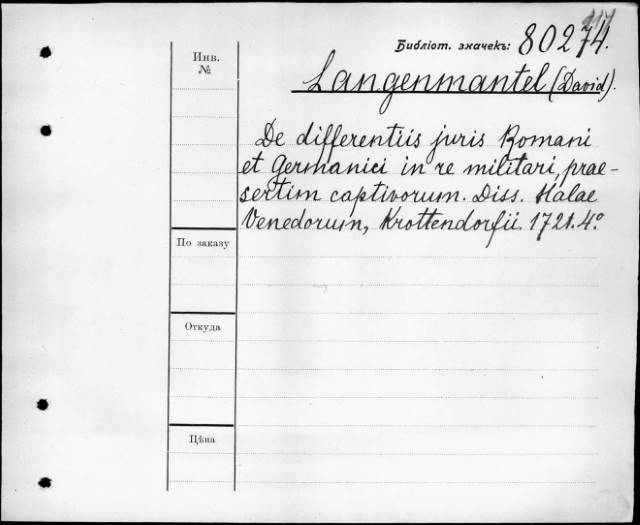 117
Библіот. значекъ: 80274.
Инв.
№
Langenmantel (David).
De differentiis juris Romani
et Germanici in re militari, prae-
sertim captivorum. Diss. Halae
Venedorum, Krottendorfii. 1721. 4.º
По заказу
Откуда
Цѣна